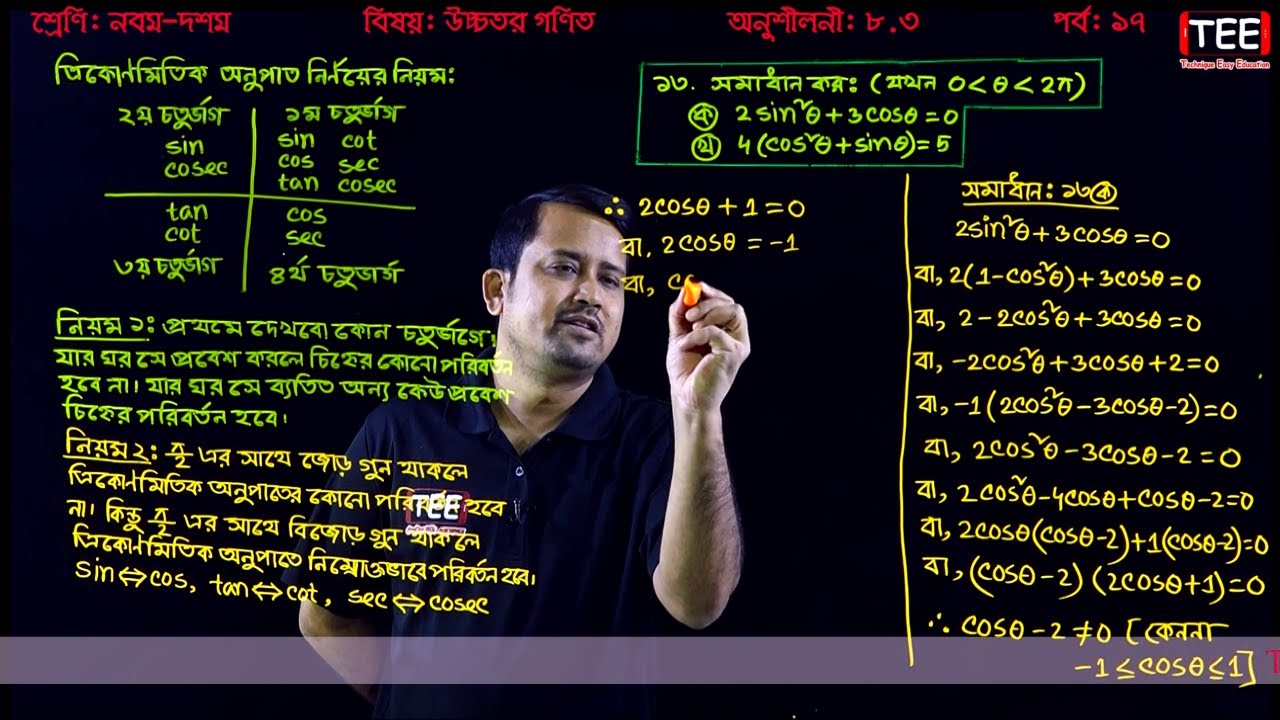 শ্রেণি: নবম-দশম বিষয়: উচ্চতর গণিত অনুশীলনী: ৮.৩ পর্ব: ১৭
TEE
Technique Easy Education
ত্রিকোণমিতিক অনুপাত নির্ণয়ের নিয়ম:
২য় চতুর্ভাগ
sin
cosec
১ম চতুর্ভাগ
sin cot
cos sec
tan cosec
tan
cot
৩য় চতুর্ভাগ
cos
sec
৪র্থ চতুর্ভাগ
নিয়ম ১: প্রথমে দেখবো কোন চতুর্ভাগে।
যার ঘর সে প্রবেশ করলে চিহ্নের কোনো পরিবর্তন
হবে না। যার ঘর সে ব্যতিত অন্য কেউ প্রবেশ
চিহ্নের পরিবর্তন হবে।
নিয়ম ২: π/2 এর সাথে জোড় গুন থাকলে
ত্রিকোণমিতিক অনুপাতের কোনো পরিবর্তন হবে
না। কিন্তু π/2 এর সাথে বিজোড় গুন থাকলে
ত্রিকোণমিতিক অনুপাতে নিম্নোক্তভাবে পরিবর্তন হবে।
sin⇔cos, tan⇔cot, sec⇔cosec
TEE
১৩. সমাধান কর: (যখন 0<θ<2π)
ক 2sin²θ+3cosθ=0
খ 4(cos²θ+sinθ)=5
∴ 2cosθ+1=0
বা, 2cosθ = -1
বা, co
সমাধান: ১৩(ক)
2sin²θ+3cosθ=0
বা, 2(1-cos²θ)+3cosθ=0
বা, 2-2cos²θ+3cosθ=0
বা, -2cos²θ+3cosθ+2=0
বা, -1(2cos²θ-3cosθ-2)=0
বা, 2cos²θ-3cosθ-2=0
বা, 2cos²θ-4cosθ+cosθ-2=0
বা, 2cosθ(cosθ-2)+1(cosθ-2)=0
বা, (cosθ-2)(2cosθ+1)=0
∴ cosθ-2≠0 [কেননা
-1≤cosθ≤1]